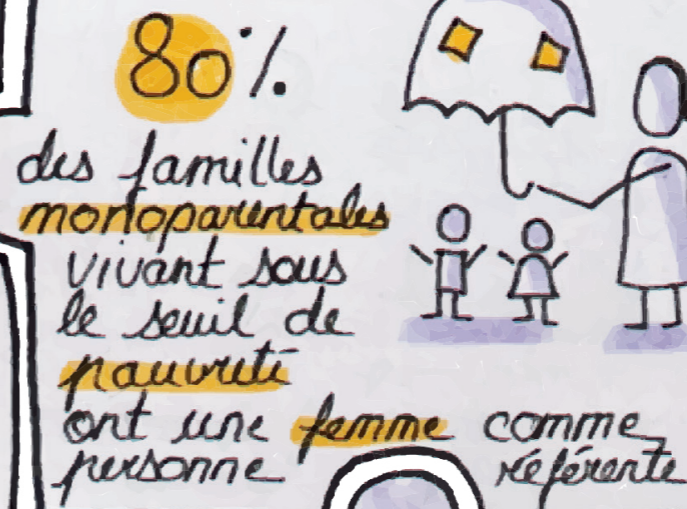 80%
des familles
monoparentales
vivant sous
le seuil de
pauvreté
ont une femme comme
personne référente